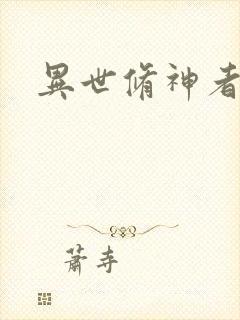 異世脩神者
蕭寺